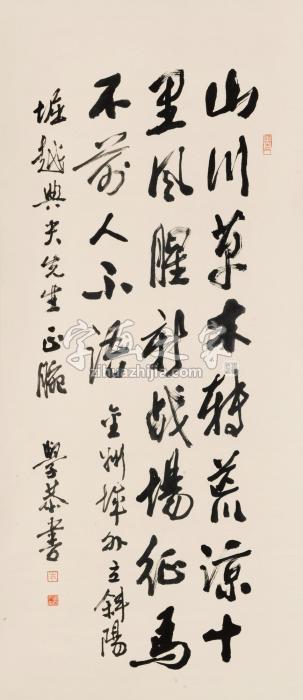 山川草木轉荒涼十
里风腥新战場征馬
不前人不語金州城外立斜陽
堀越典夫先生正腕
學恭書
字画之家
zihuazhijia.com